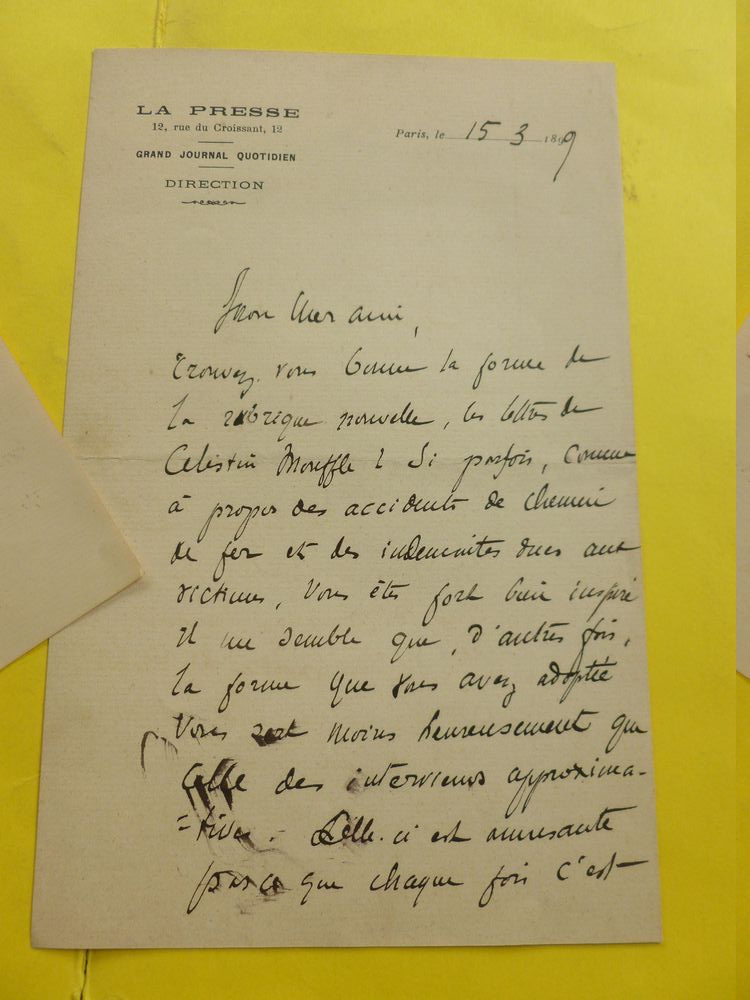 LA PRESSE
12, rue du Croissant, 12
GRAND JOURNAL QUOTIDIEN
DIRECTION
Paris, le 15 3 1899
Mon cher ami,
Trouvez vous bonne la forme de
la rubrique nouvelle, les lettres de
Celestin Mouffle ? Si parfois, comme
à propos des accidents de chemin
de fer et des indemnités dues aux
victimes, vous êtes fort bien inspiré
il me semble que, d'autres fois,
la forme que vous avez adoptée
vous sert moins heureusement que
celle des interviews approxima-
=tives. Celle-ci est amusante
parce que chaque fois c'est